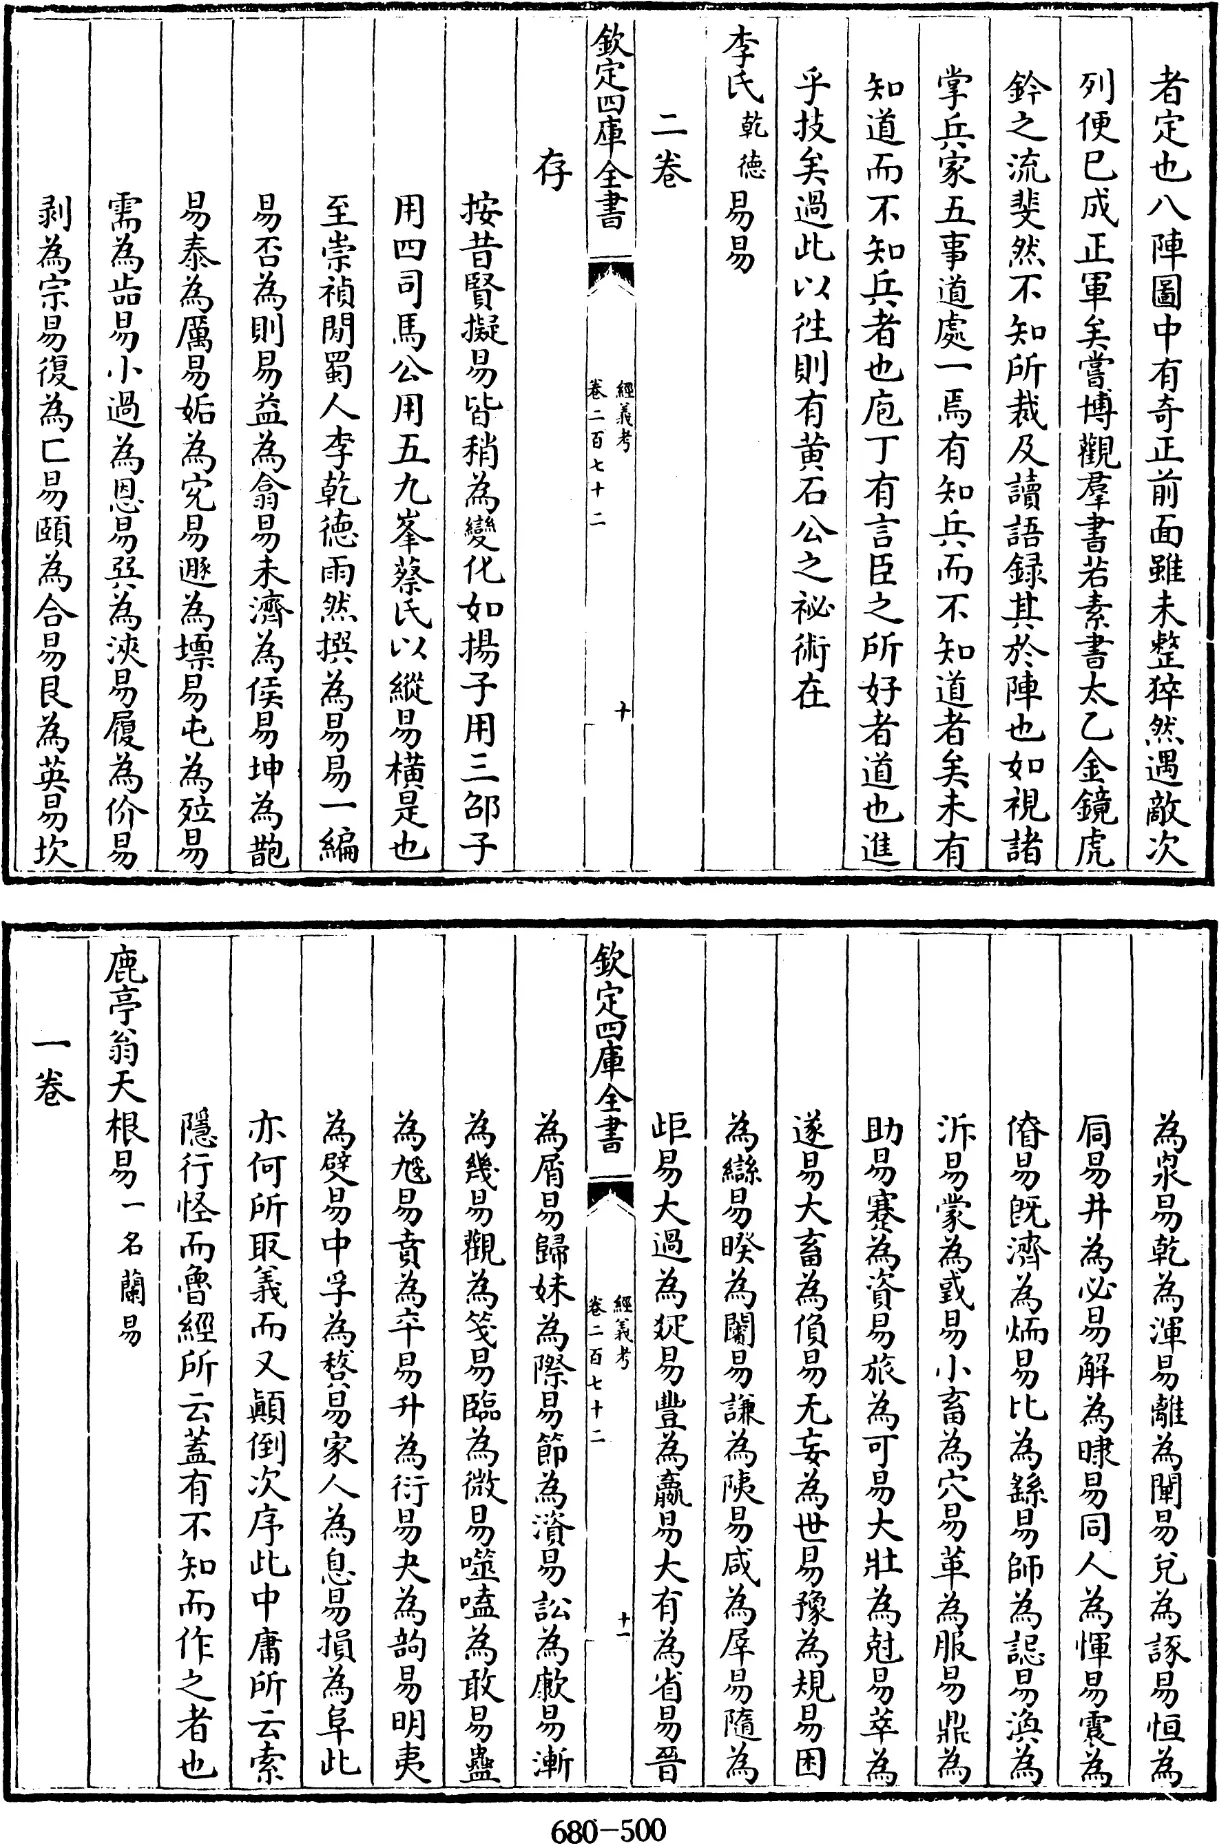 者定也八陣圖中有奇正前面雖未整猝然遇敵次
列便已成正軍矣嘗博觀羣書若素書太乙金鏡虎
鈐之流斐然不知所裁及讀語録其於陣也如視諸
掌兵家五事道處一焉有知兵而不知道者矣未有
知道而不知兵者也庖丁有言臣之所好者道也進
乎技矣過此以徃則有黄石公之祕術在
李氏乾德易易
二卷
欽定四庫全書
經義考
卷二百七十二
十
存
按昔賢擬易皆稍為變化如揚子用三邵子
用四司馬公用五九峯蔡氏以縱易横是也
至崇禎閒蜀人李乾德雨然撰為易易一編
易否為則易益為翕易未濟為俟易坤為
易泰為厲易姤為究易遯為易屯為易
需為易小過為恩易巽為浹易履為价易
剥為宗易復為匸易頤為合易艮為英易坎
為泉易乾為渾易離為闡易兌為諑易恒為
扃易井為必易解為曃易同人為惲易震為
易旣濟為炳易比為繇易師為誋易渙為
泝易蒙為或易小畜為穴易革為服易鼎為
助易蹇為資易旅為可易大壯為尅易萃為
遂易大畜為偩易无妄為世易豫為規易困
為戀易睽為易謙為易咸為孱易隨為
岠易大過為易豐為嬴易大有為省易晉
欽定四庫全書
經義考
卷二百七十二
十一
為屑易歸妹為際易節為濱易訟為易漸
為幾易觀為笺易臨為微易噬嗑為敢易蠱
為易賁為卒易升為衍易夬為韵易明夷
為易中孚為易家人為息易損為阜此
亦何所取義而又顚倒次序此中庸所云索
隱行怪而魯經所云蓋有不知而作之者也
鹿亭翁天根易一名蘭易
一卷
680-500